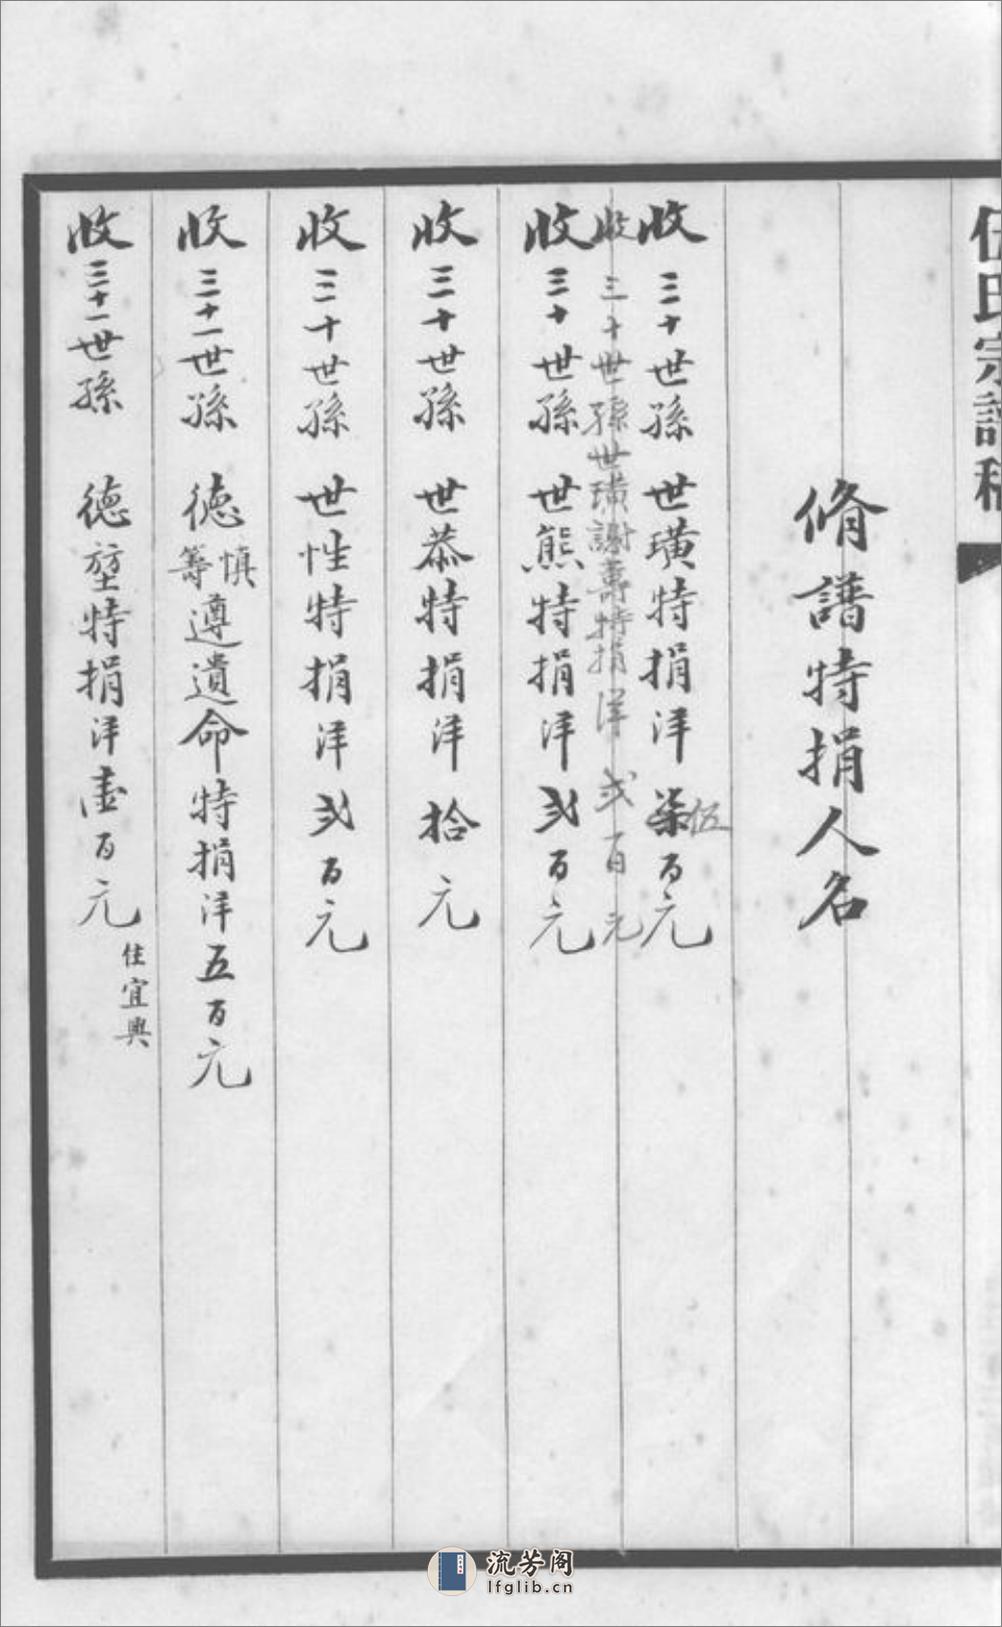 氏宗譜
脩譜特捐人名
收三十世孫 世璜特捐洋柒伍百元
收三十世孫世璜謝壽特捐洋弍百元
收三十世孫 世熊特捐洋弍百元
收三十世孫 世恭特捐洋拾元
收三十世孫 世性特捐洋弍百元
收三十一世孫 德慎等遵遺命特捐洋五百元
收三十一世孫 德堃特捐洋壹百元 住宜興
流芳阁
lfglib.cn